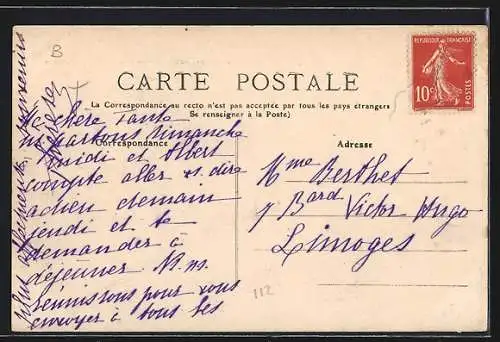 B
CARTE POSTALE
La Correspondance au recto n'est pas acceptée par tous les pays étrangers
Se renseigner à la Poste)
Correspondance
Adresse
REPUBLIQUE FRANÇAISE
10c
POSTES
chère Tante
partons dimanche
midi et Albert
compte aller vs dire
adieu demain
jeudi et te
demander à
déjeuner. Ns ns
réunissons pour vous
envoyer à tous les
plus affectueux souvenirs
Mme Berthet
7 Bard Victor Hugo
Limoges
112